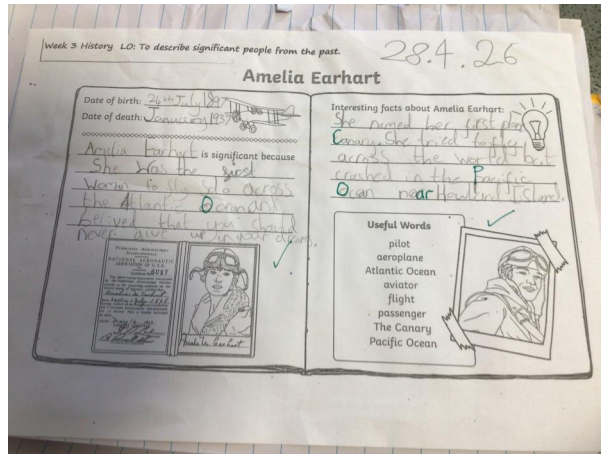 Week 3 History LO: To describe significant people from the past.
28.4.26
Amelia Earhart
Date of birth: 24th July 1897
Date of death: January 1939
Amelia Earhart is significant because
She was the first
woman to fly solo across
the Atlantic Ocean and
belived that you should
never give up in your dreams.
NATIONAL AERONAUTIC
ASSOCIATION OF U.S.A.
6017
Amelia M. Earhart
Interesting facts about Amelia Earhart:
She named her first plane
Canary. She tried to fly
across the world but
crashed in the Pacific
Ocean near Howland Island.
Useful Words
pilot
aeroplane
Atlantic Ocean
aviator
flight
passenger
The Canary
Pacific Ocean